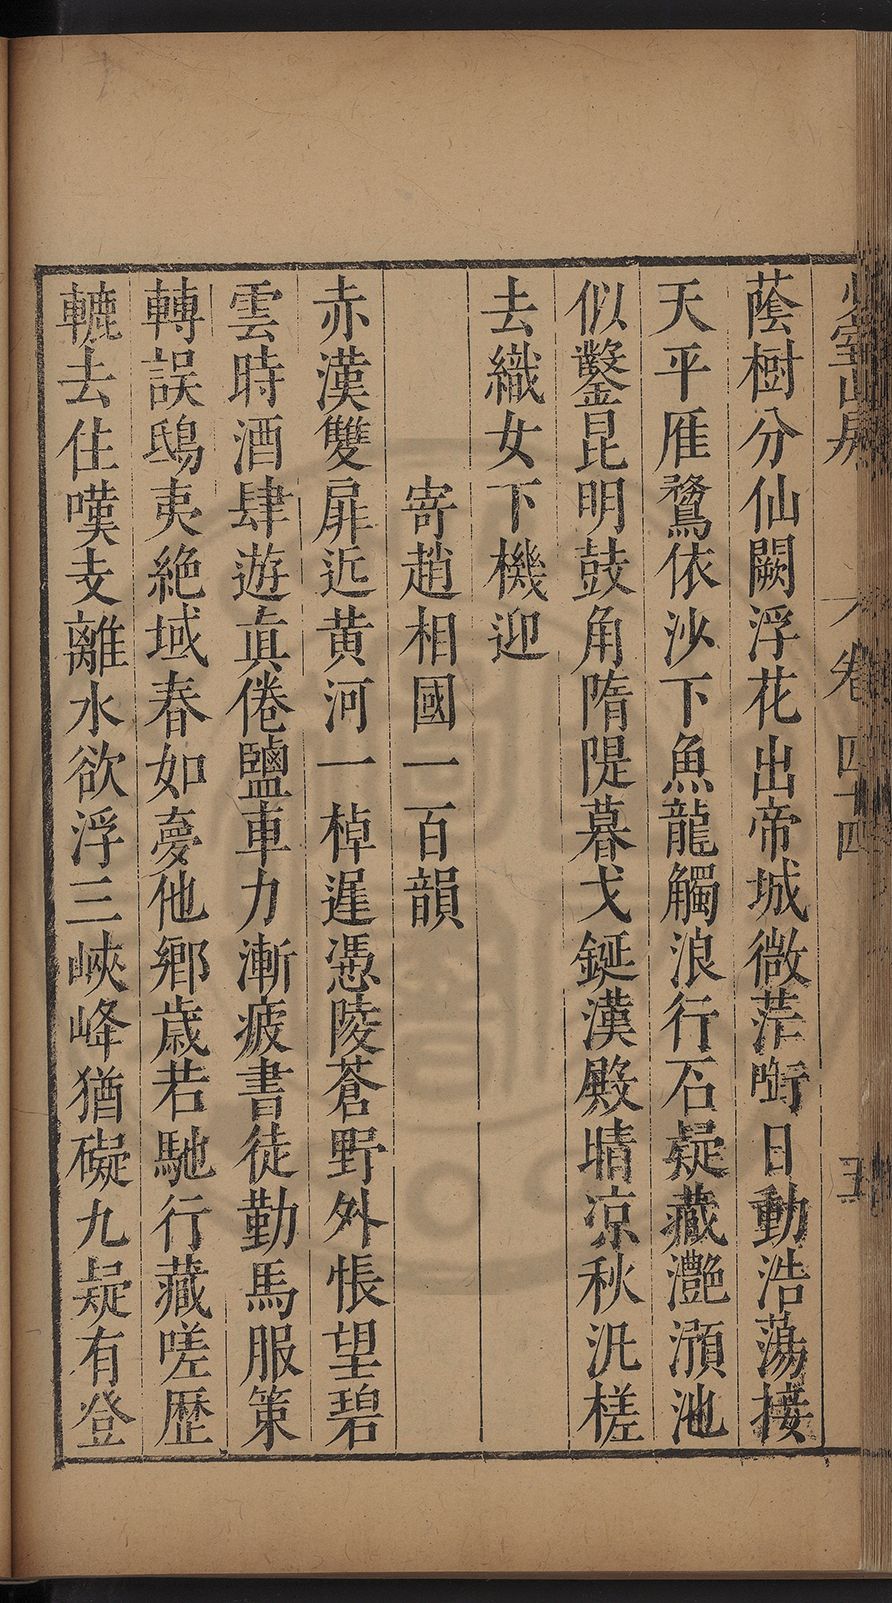 少室山房 卷四十四 五
蔭樹分仙闕浮花出帝城微茫晴日動浩蕩接
天平雁鶩依沙下魚龍觸浪行石疑藏灔澦池
似鑿昆明鼓角隋隄暮戈鋋漢殿晴凉秋汎槎
去織女下機迎
寄趙相國一百韻
赤漢雙扉近黄河一棹遲憑陵蒼野外悵望碧
雲時酒肆遊真倦鹽車力漸疲書徒勤馬服策
轉誤鴟夷絶域春如夣他鄉歳若馳行藏嗟歴
轆去住嘆支離水欲浮三峽峰猶礙九疑有登